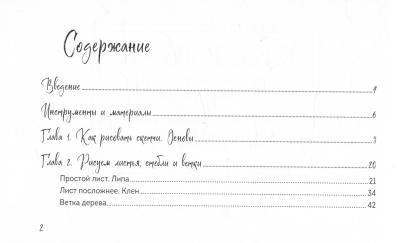 Содержание
Введение 4
Инструменты и материалы 6
Глава 1. Как рисовать скетчи. Основы 8
Глава 2. Рисуем листья, стебли и ветки 20
Простой лист. Липа 21
Лист посложнее. Клен 34
Ветка дерева 42
2